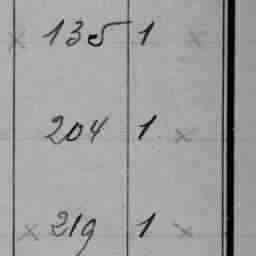 × 135 1 ×
204 1 ×
× 219 1 ×